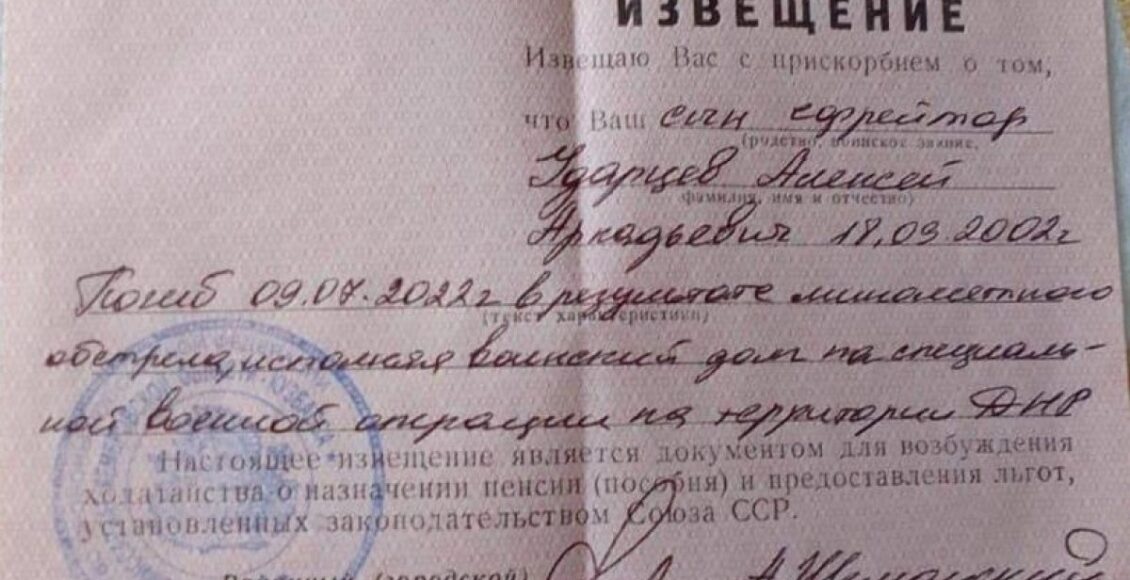 ИЗВЕЩЕНИЕ
Извещаю Вас с прискорбием о том,
что Ваш сын ефрейтор
(родство, воинское звание,
Ударцев Алексей
фамилия, имя и отчество)
Аркадьевич 18.03 2002г
Погиб 09.07.2022г в результате минометного
(текст характеристики)
обстрела, исполняя воинский долг на специаль-
ной военной операции на территории ДНР
Настоящее извещение является документом для возбуждения
ходатайства о назначении пенсии (пособия) и предоставления льгот,
установленных законодательством Союза ССР.
(городской)